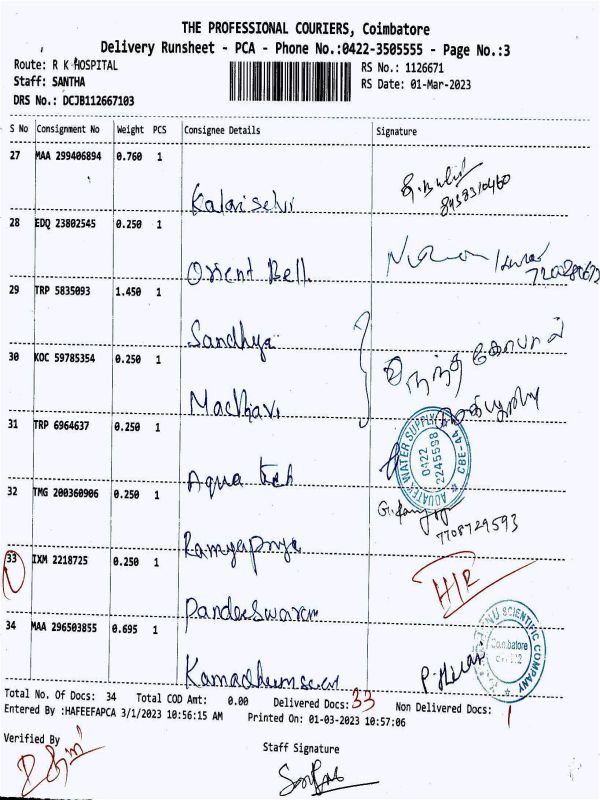 THE PROFESSIONAL COURIERS, Coimbatore
Delivery Runsheet - PCA - Phone No.:0422-3505555 - Page No.:3
Route: R K HOSPITAL
RS No.: 1126671
Staff: SANTHA
RS Date: 01-Mar-2023
DRS No.: DCJB112667103
S No Consignment No Weight PCS Consignee Details Signature
27 MAA 299406894 0.760 1
Kalaiselvi
28 EDQ 23802545 0.250 1
Orient Bell
29 TRP 5835093 1.450 1
Sandhya
30 KOC 59785354 0.250 1
Madhavi
31 TRP 6964637 0.250 1
Aqua tech
AQUATEX WATER SUPPLY
0422
2245598
CBE-44
32 TMG 200360906 0.250 1
7708729593
Ramyapriya
33 IXM 2218725 0.250 1
Pandeeswaran
34 MAA 296503855 0.695 1
SCIENTIFIC COMPANY
Coimbatore
Total No. Of Docs: 34 Total COD Amt: 0.00 Delivered Docs: 33 Non Delivered Docs: 1
Entered By :HAFEEFAPCA 3/1/2023 10:56:15 AM Printed On: 01-03-2023 10:57:06
Verified By
Staff Signature